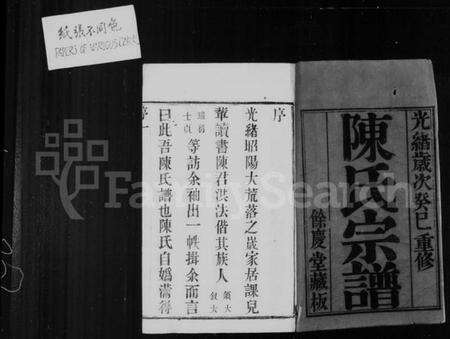 紙張不同色
PAPERS OF VARIOUS SIZES
光緒歲次癸巳重修
陳氏宗譜
餘慶堂藏板
序
光緒昭陽大荒落之歲家居課兒
輩讀書陳君洪法偕其族人
等訪余袖出一帙揖余而言
曰此吾陳氏譜也陳氏自媯滿得
序一
FamilySearch